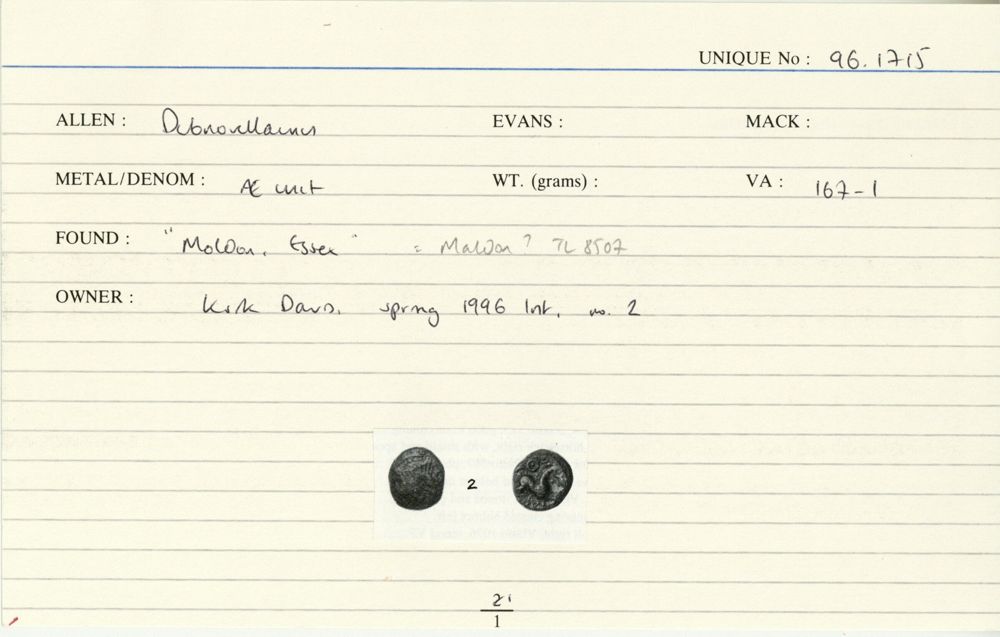 UNIQUE No : 96.1715
ALLEN : Dubnovellaunus EVANS : MACK :
METAL/DENOM : Æ unit WT. (grams) : VA : 167-1
FOUND : "Moldon, Essex" = Maldon? TL 8507
OWNER : Kirk Davis, spring 1996 list, no. 2
2
21
1